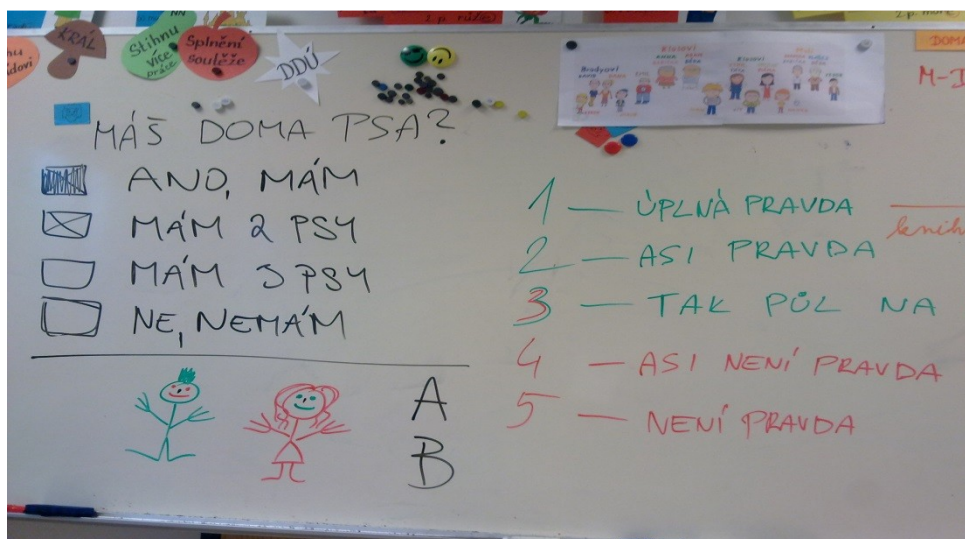 2.p. růže
KRÁL
Stihnu
více
práce
Splnění
soutěže
DDÚ
DOMA
M-D
MÁŠ DOMA PSA?
ANO, MÁM
MÁM 2 PSY
MÁM 3 PSY
NE, NEMÁM
A
B
1 — ÚPLNÁ PRAVDA
2 — ASI PRAVDA
3 — TAK PŮL NA
4 — ASI NENÍ PRAVDA
5 — NENÍ PRAVDA
knih